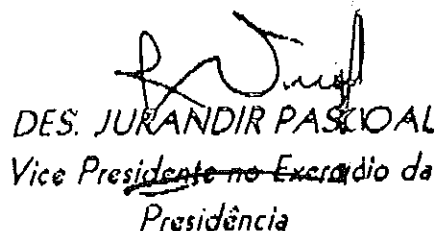 DES. JURANDIR PASCOAL
Vice Presidente no Exercídio da
Presidência